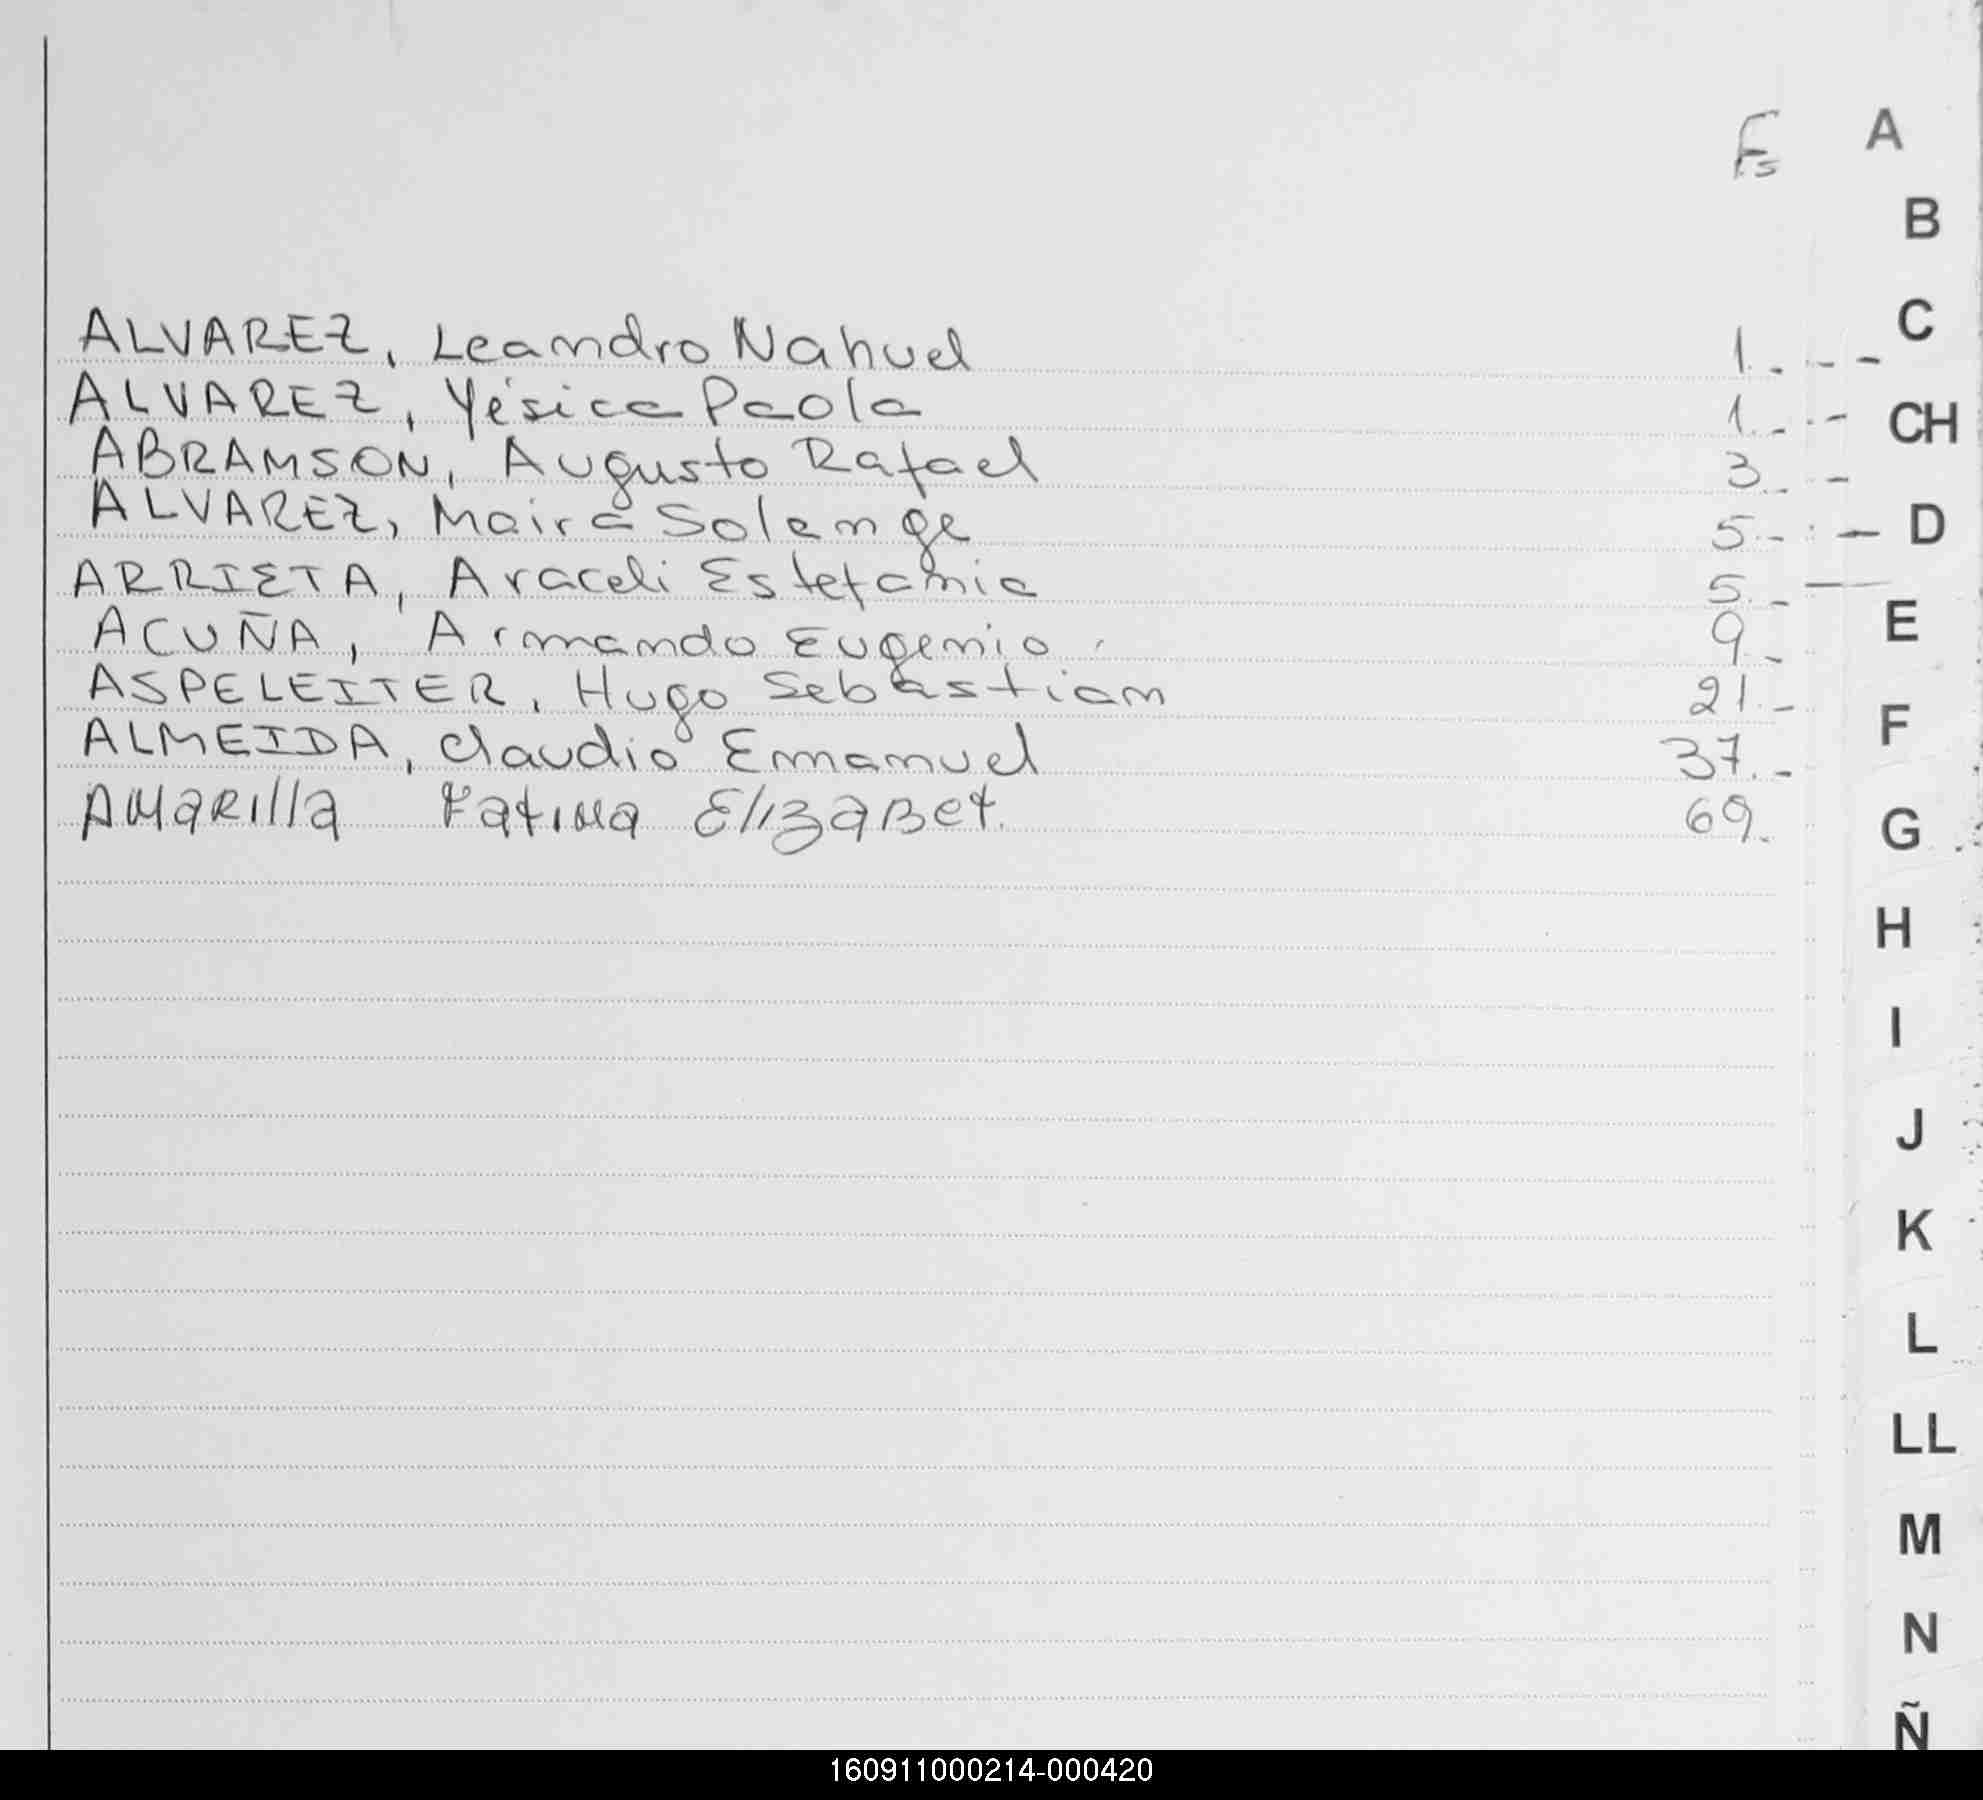 Fs
A
B
C
ALVAREZ, Leandro Nahuel 1.-
ALVAREZ, Yésica Paola 1.-
CH
ABRAMSON, Augusto Rafael 3.-
ALVAREZ, Maira Solange 5.-
D
ARRIETA, Araceli Estefania 5.-
E
ACUÑA, Armando Eugenio. 9.-
ASPELEITER, Hugo Sebastian 21.-
F
ALMEIDA, Claudio Emmanuel 37.-
AMARIlla Fatima ElizaBet. 69.
G
H
I
J
K
L
LL
M
N
Ñ
160911000214-000420